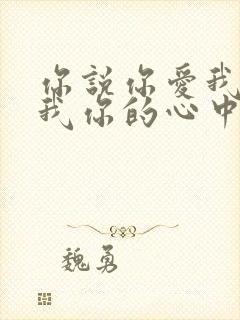 你說你愛我
我你的心中
魏勇